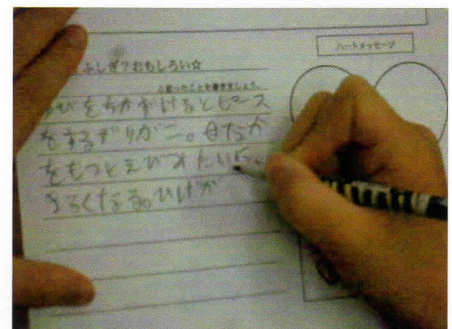 ハートメッセージ
ふしぎ?おもしろい☆
をちかづけるとピース
をするザリガニ。せなか
をもつとえびみたいに、
まるくなる。ひげが